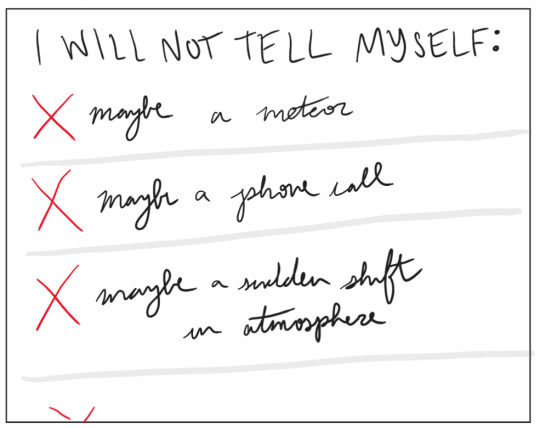 I WILL NOT TELL MYSELF:
maybe a meteor
maybe a phone call
maybe a sudden shift
in atmosphere